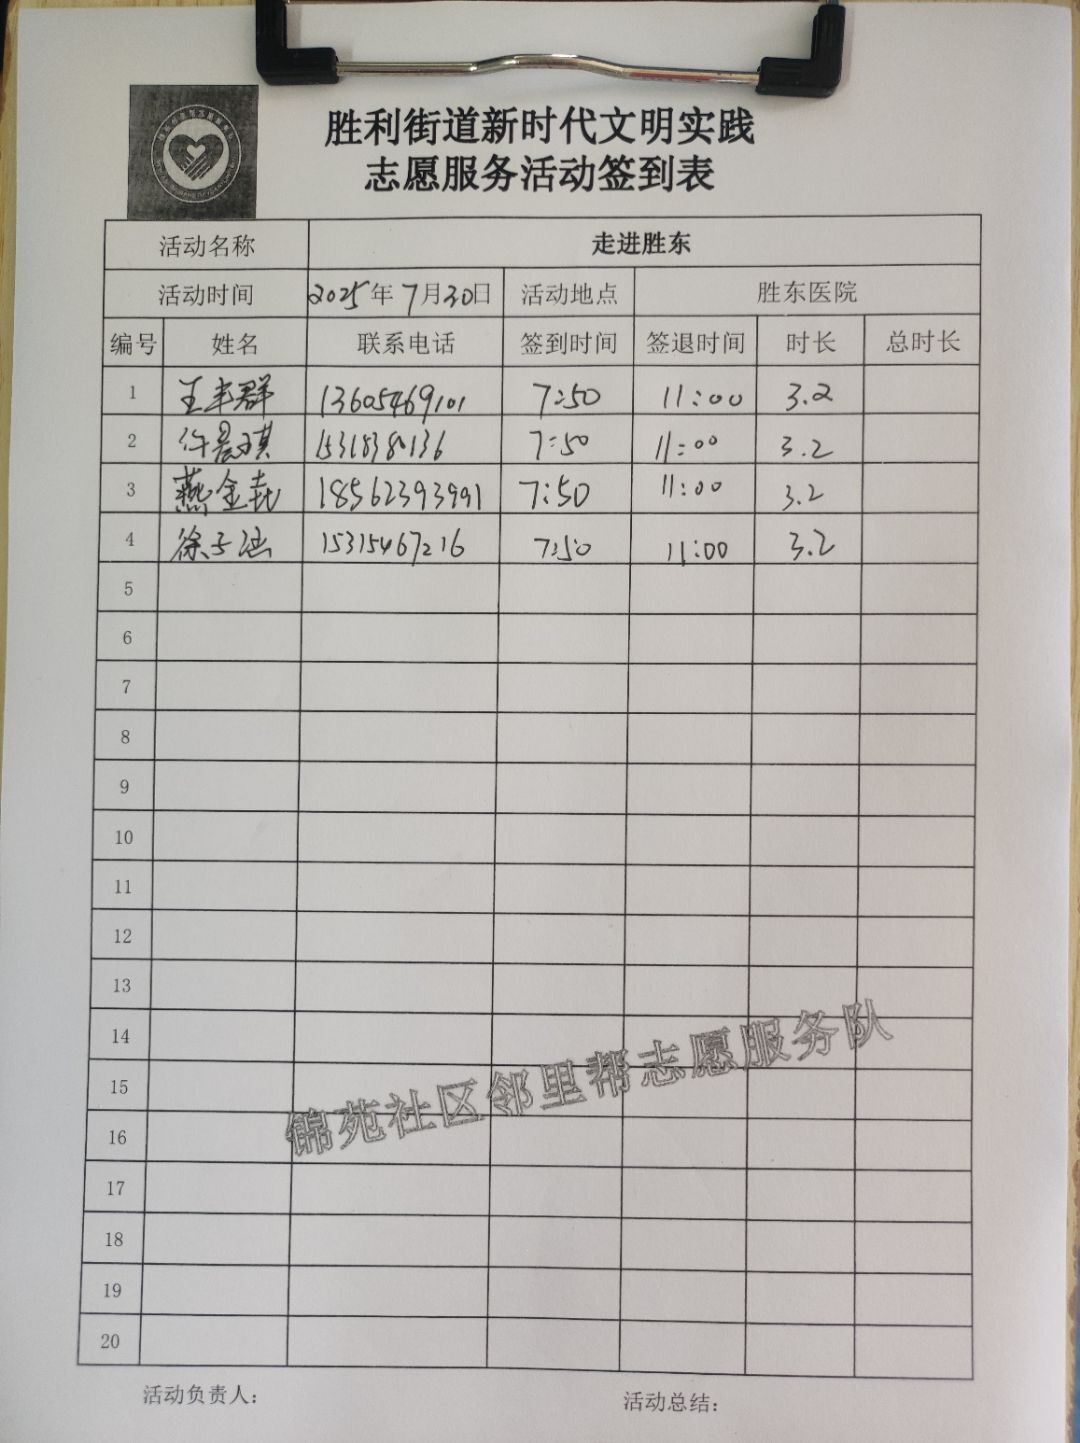 胜利街道新时代文明实践
志愿服务活动签到表
活动名称 走进胜东
活动时间 2025年7月30日 活动地点 胜东医院
编号 姓名 联系电话 签到时间 签退时间 时长 总时长
1 王丰群 13605469101 7:50 11:00 3.2
2 许晨琪 15318380136 7:50 11:00 3.2
3 燕金垚 18562393991 7:50 11:00 3.2
4 徐子涵 15315467216 7:50 11:00 3.2
5
6
7
8
9
10
11
12
13
14
15
16
17
18
19
20
锦苑社区邻里帮志愿服务队
活动负责人: 活动总结: